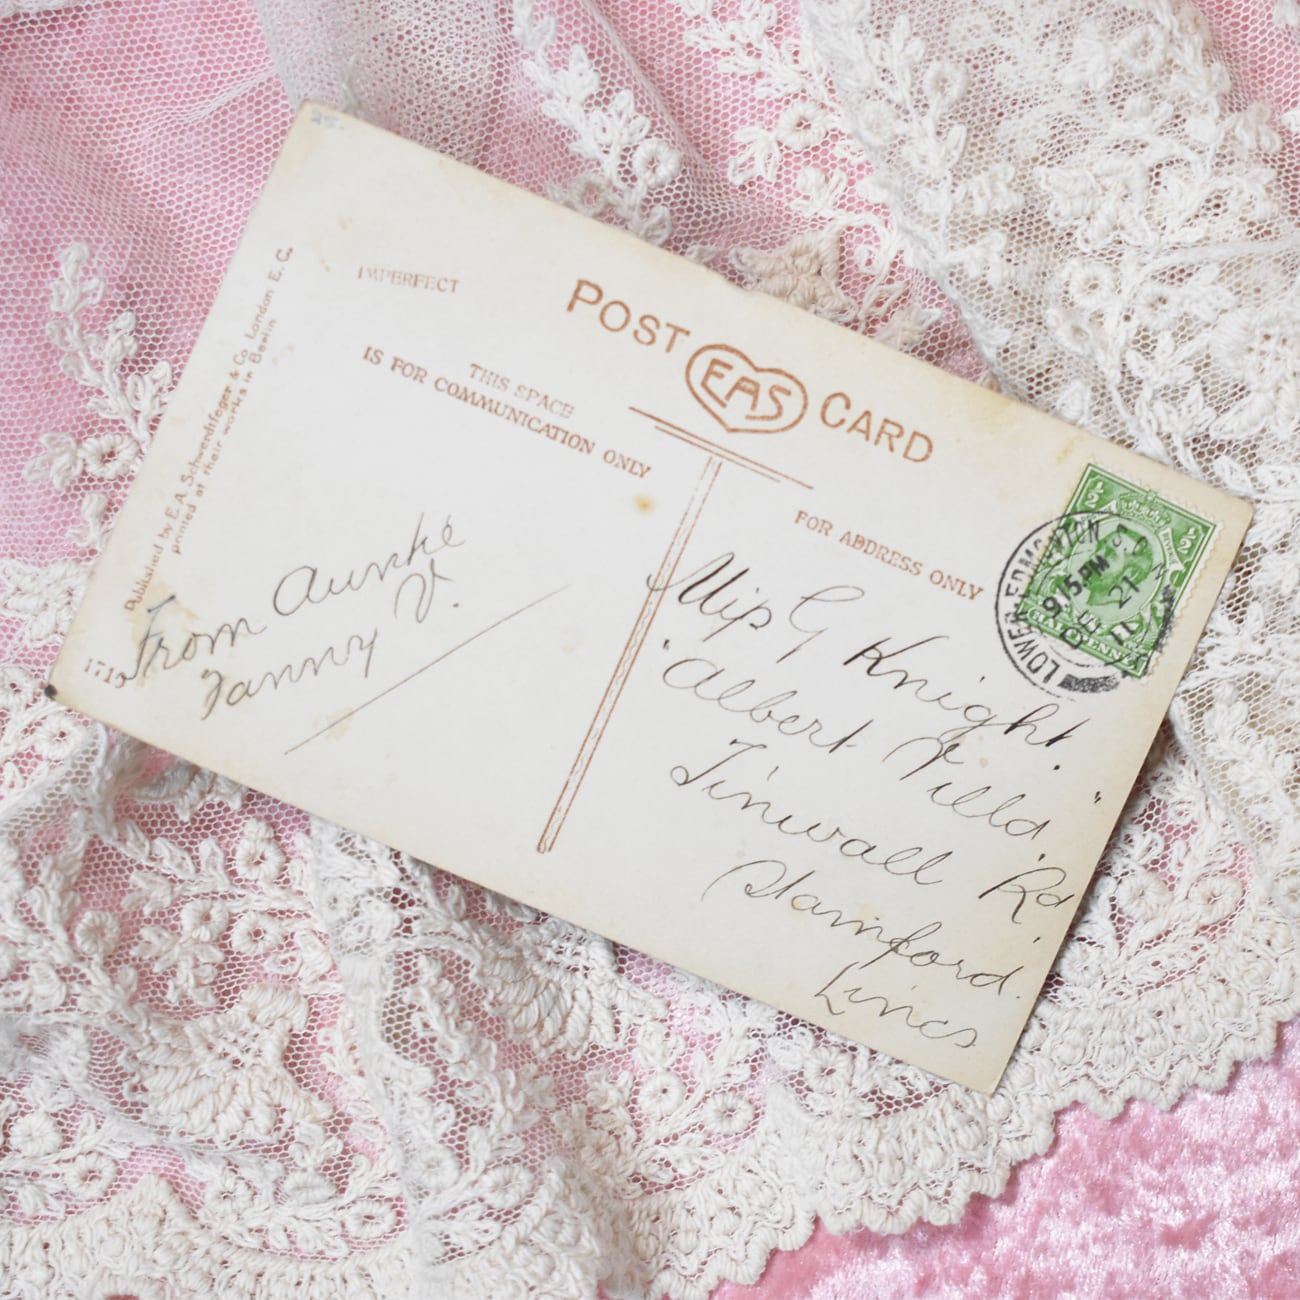 25.
IMPERFECT
POST EAS CARD
THIS SPACE
IS FOR COMMUNICATION ONLY
FOR ADDRESS ONLY
Published by E.A. Schwerdtfeger & Co London E.C.
printed at their works in Berlin
From Auntie
Fanny V.
Miss G Knight.
"Albert Villa"
Tinwall Rd.
Stamford.
Lincs
½ ½
HALFPENNY
LOWER EDMONTON S.O.
9 15 PM
21
11